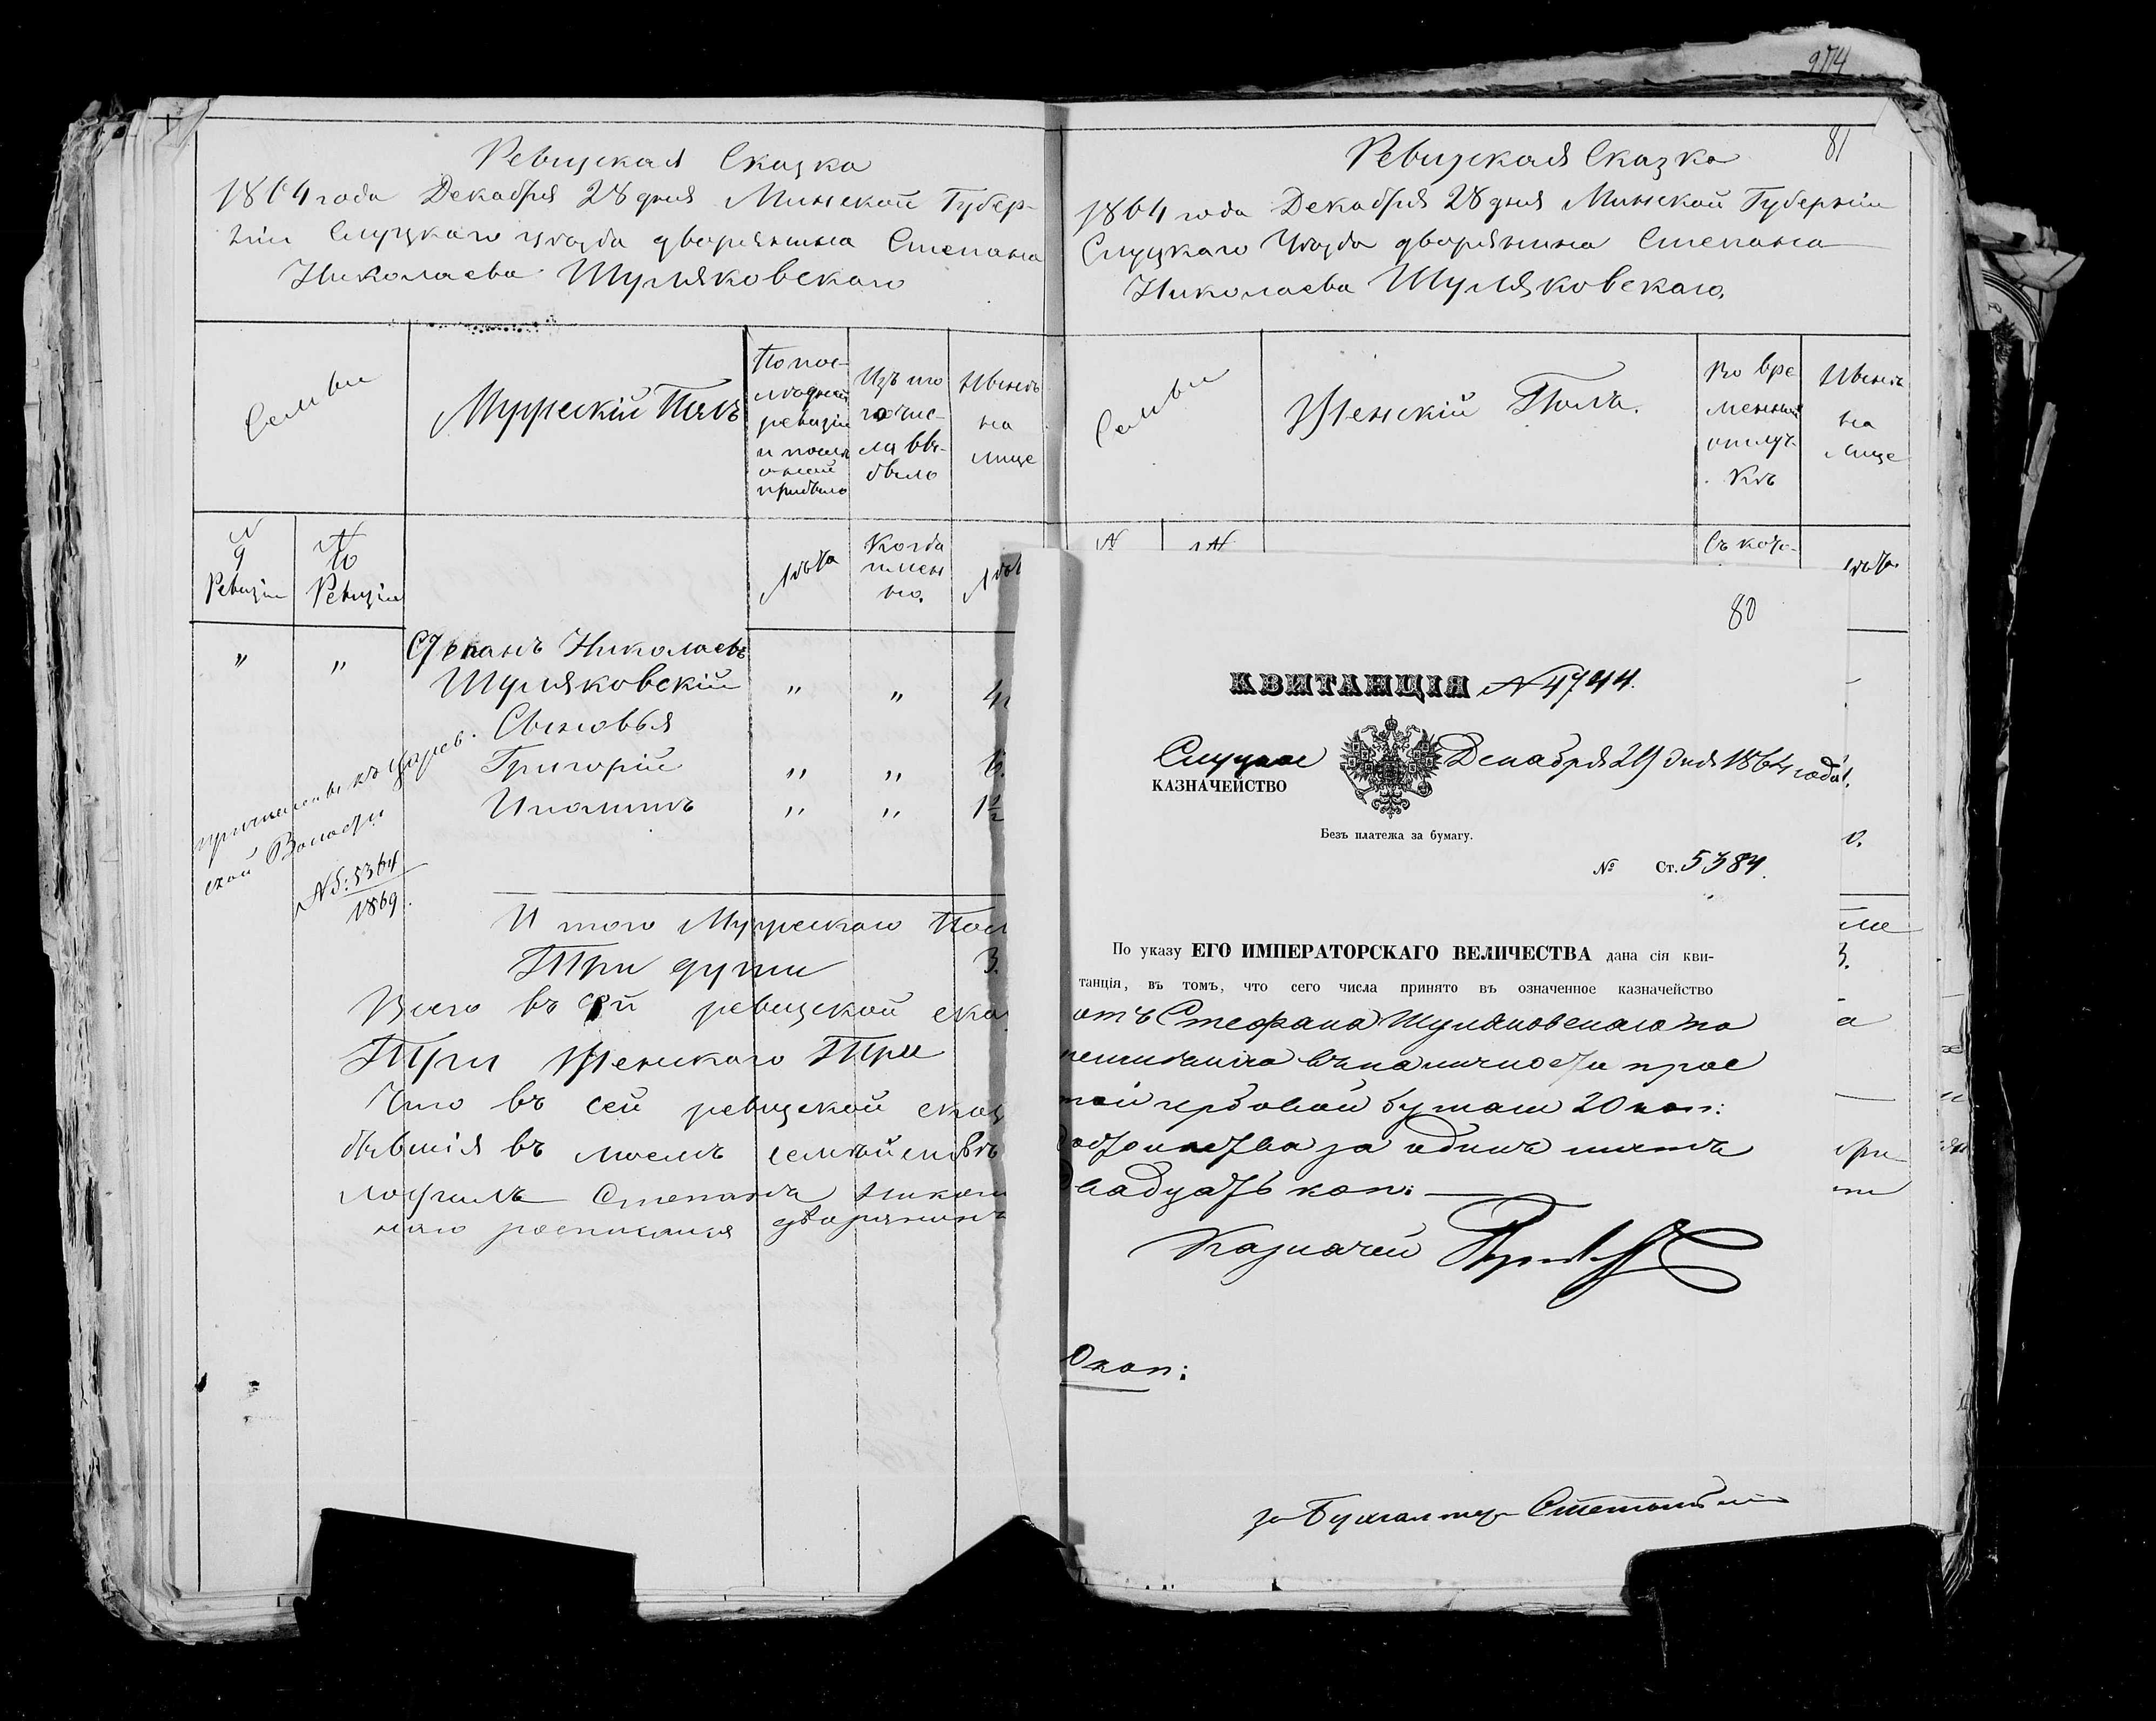 274
Ревизская Сказка
1864 года Декабря 28 дня Минской Губер-
ніи Слуцкаго уѣзда дворянина Степана
Николаева Шуляковскаго
Семьи
Мужескій Полъ
По пос-
лѣдней
ревизіи
и послѣ
оной
прибыло
Изъ то
го чис-
ла вы-
было
Нынѣ
на
лице
N
9
Ревизіи
N
10
Ревизіи
Лѣта
Когда
имен
но.
Лѣт
" " Степанъ Николаевъ
Шуляковскій " " 4
Сыновья
Григорій " " 6.
Иполитъ " " 1½
причислены къ Царев.
ской Волости
№ 5364
1869.
И того Мужескаго Пол
Три души 3.
Всего въ сей ревизской ска
Три Женскаго Три
Что въ сей ревизской сказ
бывшія въ моемъ семѣйствѣ
Степана Никол
росписался дворянинъ
81
Ревизская Сказка
1864 года Декабря 28 дня Минской Губерніи
Слуцкаго Уѣзда дворянина Степана
Николаева Шуляковскаго.
Семьи
Женскій Полъ.
Во вре
менной
отлуч-
кѣ
Нынѣ
на
лице
N
N
Съ кото-
лѣта
80
КВИТАНЦІЯ N 4744.
Слуцкое Декабря 29 дня 1864 года.
КАЗНАЧЕЙСТВО
Безъ платежа за бумагу.
№ Ст. 5384.
По указу ЕГО ИМПЕРАТОРСКАГО ВЕЛИЧЕСТВА дана сія кви-
танція, въ томъ, что сего числа принято въ означенное казначейство
отъ Стефана Шуляковскаго по
неимѣнію въ наличности прос
той гербовой бумаги 20 коп:
достоинства за одинъ листъ
двадцать коп:
Казначей
0 коп:
за Бухгалтера